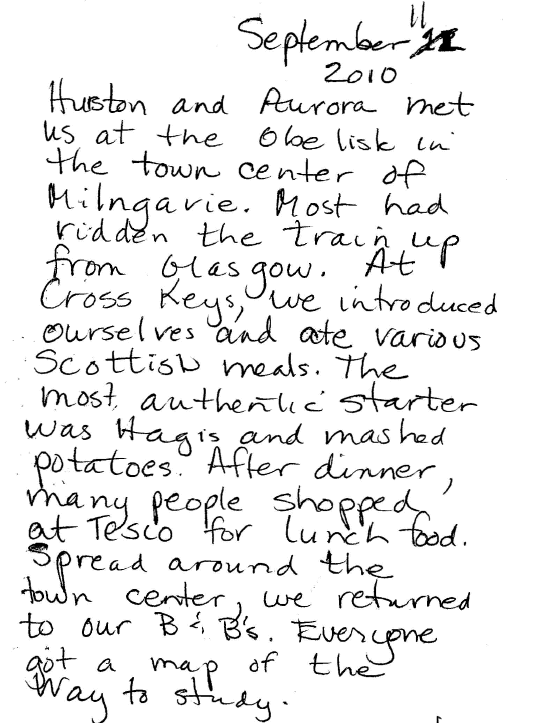 September 11
2010
Huston and Aurora met
us at the Obelisk in
the town center of
Milngarie. Most had
ridden the train up
from Glasgow. At
Cross Keys, we introduced
ourselves and ate various
Scottish meals. The
most authentic starter
was Hagis and mashed
potatoes. After dinner,
many people shopped
at Tesco for lunch food.
Spread around the
town center, we returned
to our B & B's. Everyone
got a map of the
Way to study.